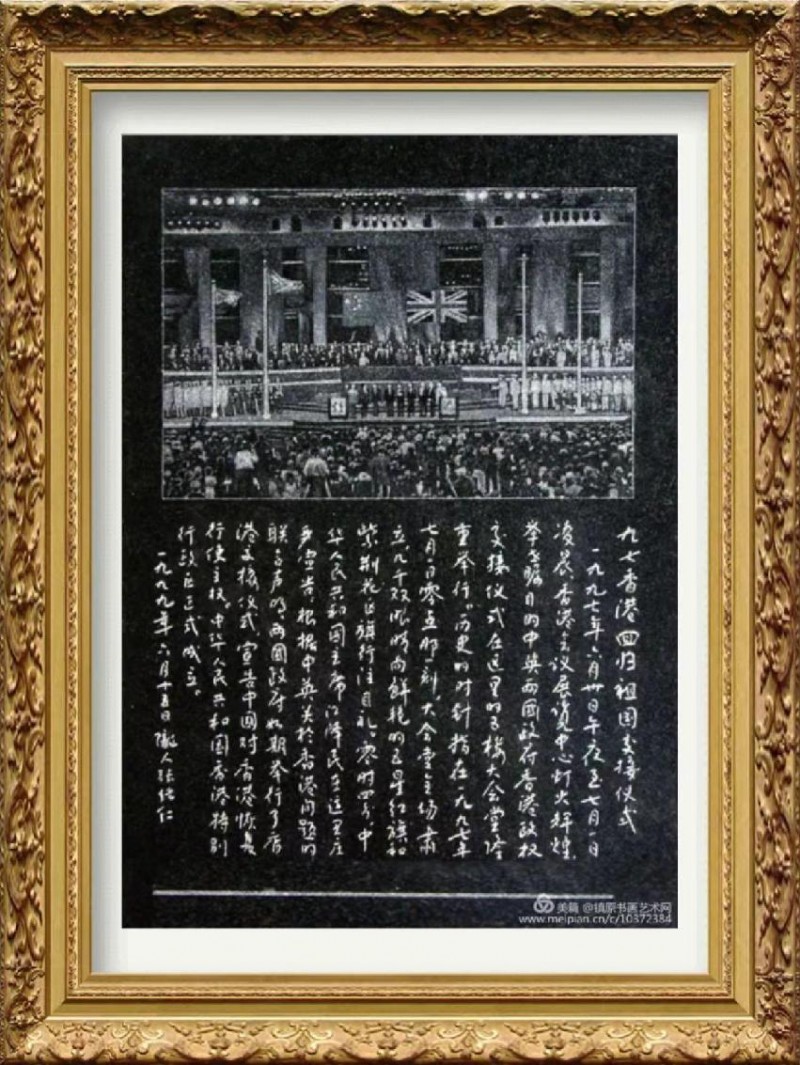 九七香港回归祖国交接仪式
一九九七年六月卅日午夜至七月一日
凌晨香港会议展览中心灯火辉煌，
举世瞩目的中英两國政府香港政权
交接仪式在这里的五楼大会堂隆
重举行。历史的时针指在一九九七年
七月一日零点那一刻，大会堂全场肃
立，几千双眼睛向鲜艳的五星红旗和
紫荆花区旗行注目礼。零时四分，中
华人民共和国主席江泽民在这里庄
严宣告：根据中英关於香港问题的
联合声明，两國政府如期举行了香
港交接仪式，宣告中国对香港恢复
行使主权。中华人民共和国香港特别
行政区正式成立。
一九九九年六月十五日 陇人张 仁
美篇 @镇原书画艺术网
www.meipian.cn/c/10372384